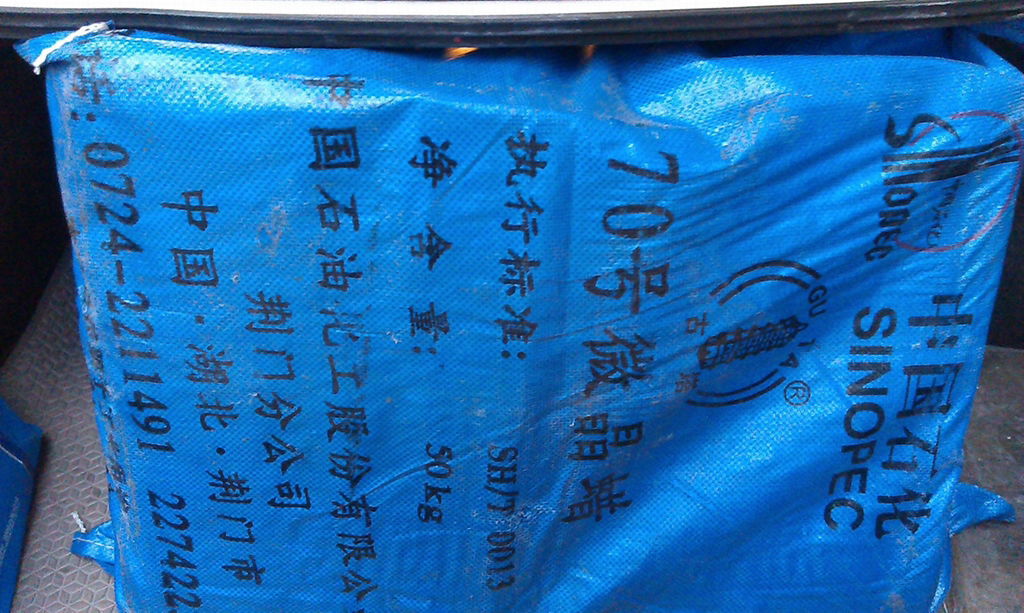 中国石化
SINOPEC
GU TA
古塔
®
70号微晶蜡
执行标准: SH/T 0013
净含量: 50kg
中国石油化工股份有限公
荆门分公司
中国·湖北·荆门市
:0724-2211491 227422